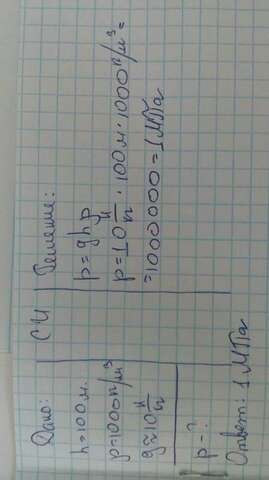 Дано:
h=100м.
p=1000п/м³
g≈10 н/кг
p-?
СИ
Решение:
p=ghp
p=10 н/кг · 100м · 1000п/м³=
=1000000=1МПа
Ответ: 1МПа